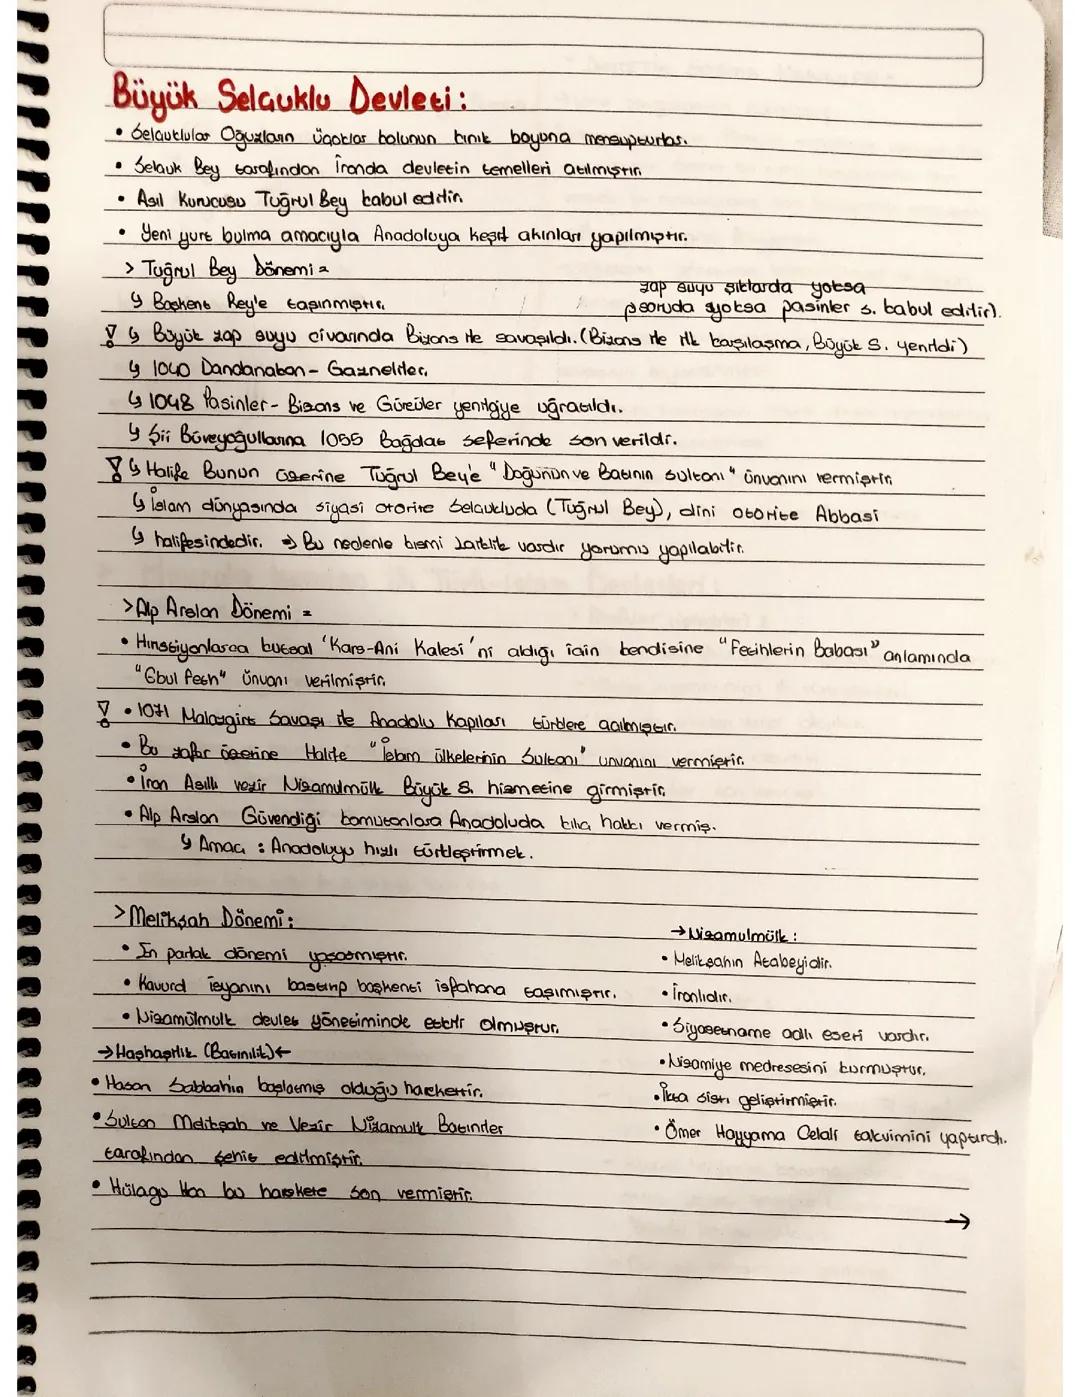 Büyük Selçuklu Devleti :
• Selçuklular Oğuzların üçoklar kolunun kınık boyuna mensupturlar.
• Selçuk Bey tarafından İranda devletin temelleri atılmıştır.
• Asıl Kurucusu Tuğrul Bey kabul edilir.
• Yeni yurt bulma amacıyla Anadoluya keşif akınları yapılmıştır.
> Tuğrul Bey Dönemi =
zap suyu şıklarda yoksa
↳ Başkent Rey'e taşınmıştır.
soruda yoksa pasinler s. kabul edilir).
↳ Büyük zap suyu civarında Bizans ile savaşıldı. (Bizans ile ilk karşılaşma, Büyük S. yenildi)
↳ 1040 Dandanakan - Gazneliler.
↳ 1048 Pasinler - Bizans ve Gürcüler yenilgiye uğratıldı.
↳ Şii Büveyoğullarına 1055 Bağdat seferinde son verildi.
↳ Halife Bunun üzerine Tuğrul Bey'e "Doğunun ve Batının sultanı" ünvanını vermiştir.
↳ İslam dünyasında siyasi otorite Selçukluda (Tuğrul Bey), dini otorite Abbasi
↳ halifesindedir. ⇒ Bu nedenle kısmi Laiklik vardır yorumu yapılabilir.
> Alp Arslan Dönemi =
• Hıristiyanlarca kutsal 'Kars-Ani Kalesi'ni aldığı için kendisine "Fetihlerin Babası" anlamında
"Ebul feth" Ünvanı verilmiştir.
• 1071 Malazgirt Savaşı ile Anadolu Kapıları türklere açılmıştır.
• Bu zafer üzerine Halife "İslam ülkelerinin Sultanı" unvanını vermiştir.
• İran Asıllı vezir Nizamulmülk Büyük S. hizmetine girmiştir.
• Alp Arslan Güvendiği komutanlara Anadoluda kılıç hakkı vermiş.
↳ Amacı : Anadoluyu hızlı türkleştirmek.
> Melikşah Dönemi :
• En parlak dönemi yaşatmıştır.
• Kavurd isyanını bastırıp başkenti isfahana taşımıştır.
• Nizamülmülk devlet yönetiminde etkili olmuştur.
→ Haşhaşilik (Batınilik) ←
• Hasan Sabbah'ın başlatmış olduğu harekettir.
• Sultan Melikşah ve Vezir Nizamulk Batıniler
tarafından şehit edilmiştir.
• Hülagu Han bu harekete son vermiştir.
→ Nizamulmülk :
• Melikşahın Atabeyidir.
• İranlıdır.
• Siyasetname adlı eseri vardır.
• Nizamiye medresesini kurmuştur.
• İkta sistı geliştirmiştir.
• Ömer Hayyama Celali takvimini yaptırdı.
→